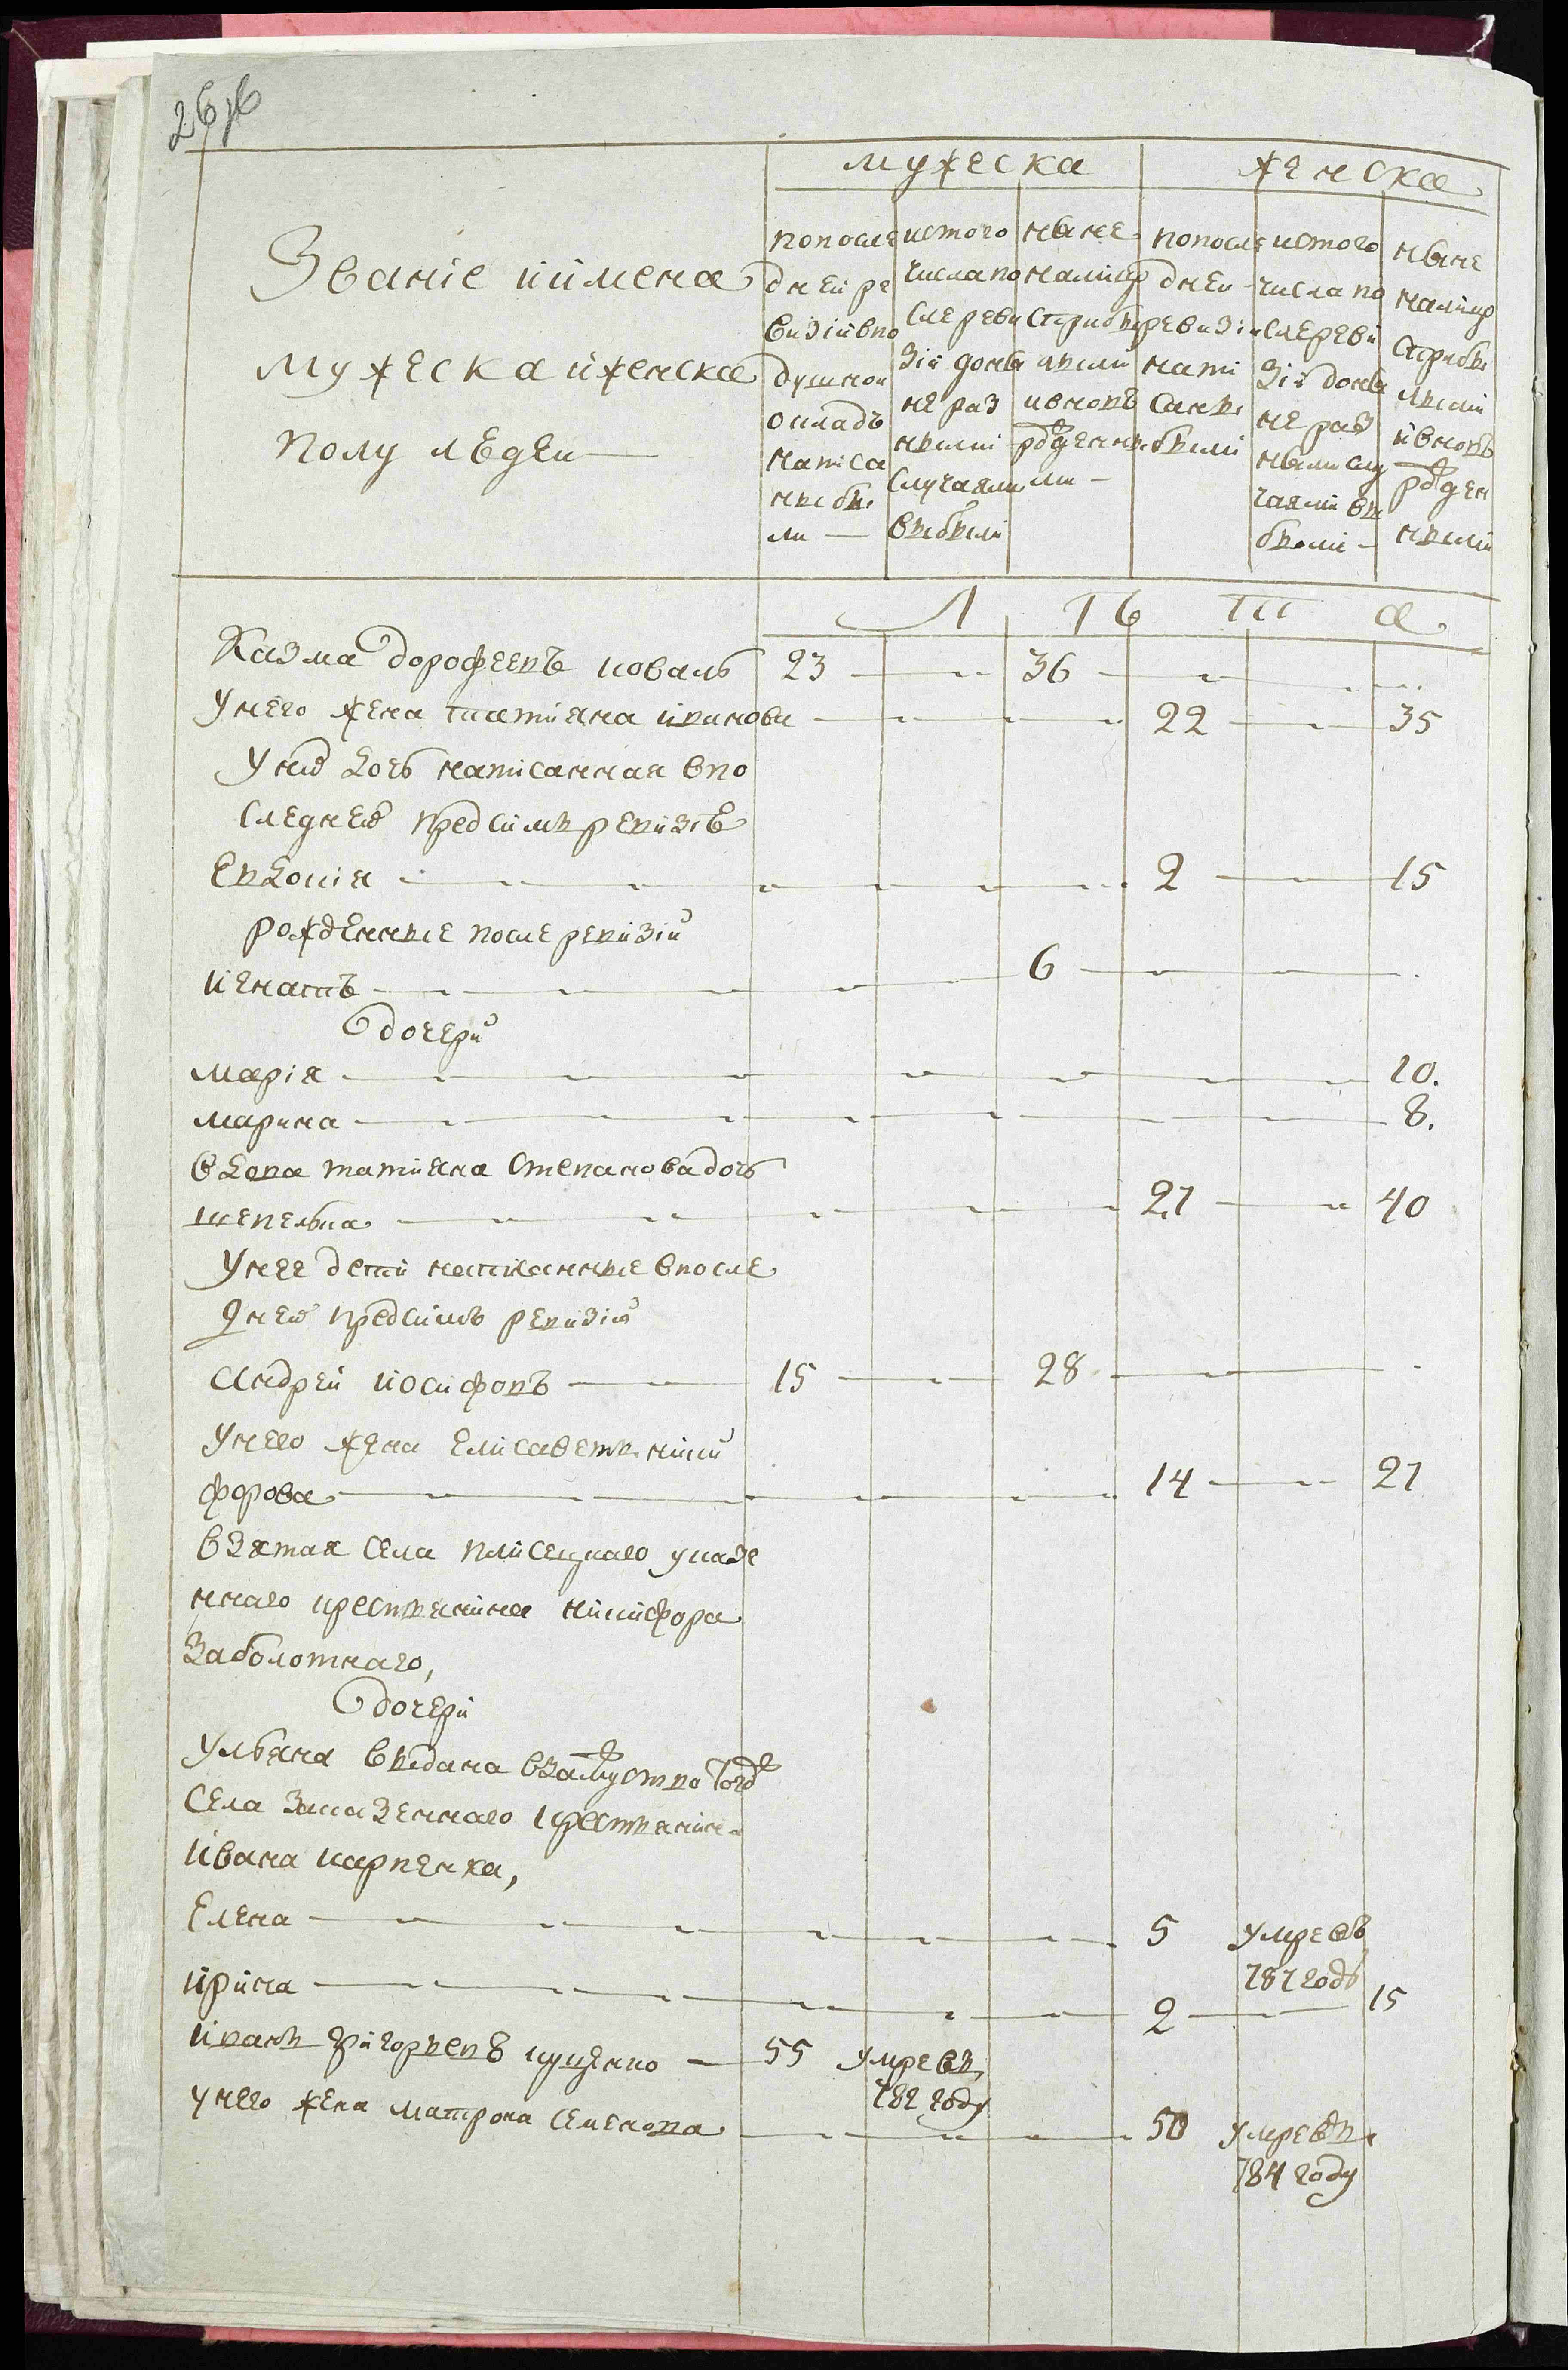 мужеска
женска
Званіе иимена
мужеска иженска
полу людей
попосле
дней ре
визіивпо
душной
окладъ
написа
ныбы
ли
истого
числа по
слереви
зіи донын
не раз
ными
случаями
выбыли
ныне
налицо
сприбы
лыми
ивновь
рожденны
ми
попосле
дней
ревизіи
напи
саны
были
истого
числа по
слереви
зіи донын
не раз
ными слу
чаями вы
были
ныне
налицо
сприбы
лыми
ивновь
рожден
ными
Л Ѣ Т а
Казма дорофеевъ коваль 23 36
Унего жена татияна иванова 22 35
Уних дочь написанная впо
следней предсимъ ревизіе
Евдокія 2 15
рожденные после ревизіи
игнатъ 6
дочери
марія 10.
марина 8.
вдова татияна степанова дочь
шепелька 27 40
Унее дети написанные впосле
дней предсимъ ревизіи
андрей иосифовъ 15 28
Унего жена елисаветъ ники
форова 14 27
взятая села плисецкаго указе
ннаго крестьянина никифора
заболотнаго,
дочери
ульяна выдана взамужство тогож
села заказеннаго крестьянина
ивана карпенка,
Елена 5 умре въ
787 годѣ
ирина 2 15
иванъ григорьевъ куценко 55 умре въ
782 году
унего жена матрона семенова 50 умре въ
784 году